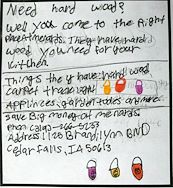 Need hard wood?
Well you come to the Right
place menards. They have hard
wood you need for your
kitchen
Things they have hard wood
carpet trace light
Applinces, garden tools and more.
Save Big money at menards
Phon Call 266-5237
Address 1125 Brandilynn BND
Cedar Falls, IA 50613